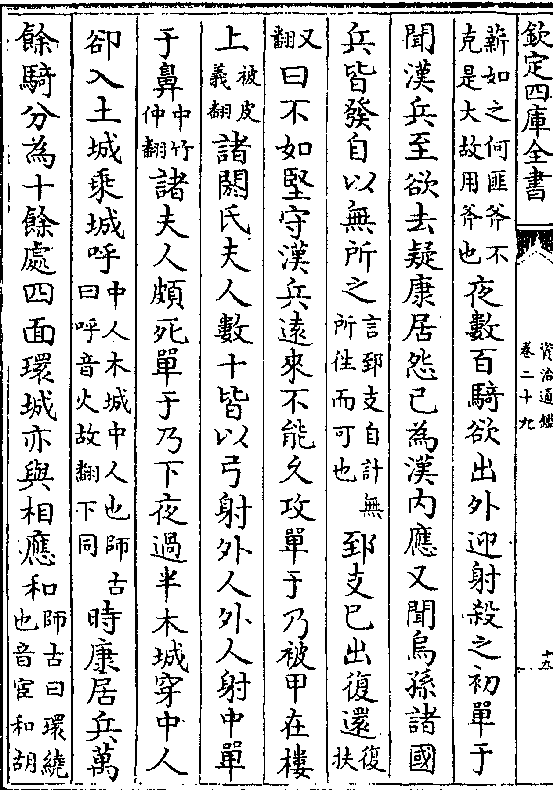 欽定四庫全書
資治通鑑
卷二十九
十五
薪如之何匪斧不克是大故用斧也夜數百騎欲出外迎射殺之初單于
聞漢兵至欲去疑康居怨己為漢内應又聞烏孫諸國
兵皆發自以無所之言郅支自計無所往而可也郅支已出復還復扶
又翻曰不如堅守漢兵逺來不能久攻單于乃被甲在樓
上被皮義翻諸閼氏夫人數十皆以弓射外人外人射中單
于鼻中竹仲翻諸夫人頗死單于乃下夜過半木城穿中人
卻入土城乘城呼中人木城中人也師古曰呼音火故翻下同時康居兵萬
餘騎分為十餘處四面環城亦與相應和師古曰環繞也音宦和胡